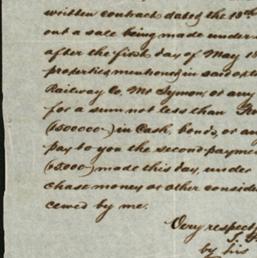 written contract dated the 18th
out a sale being made under
after the first day of May 18
properties mentioned in said
Railway Co, Mr Symon, or any
for a sum not less than
(1500000-) in Cash, bonds, or
pay to you the second payme
(5000) made this day, under
chase money or other consider
ceived by me.
Very respect
by his